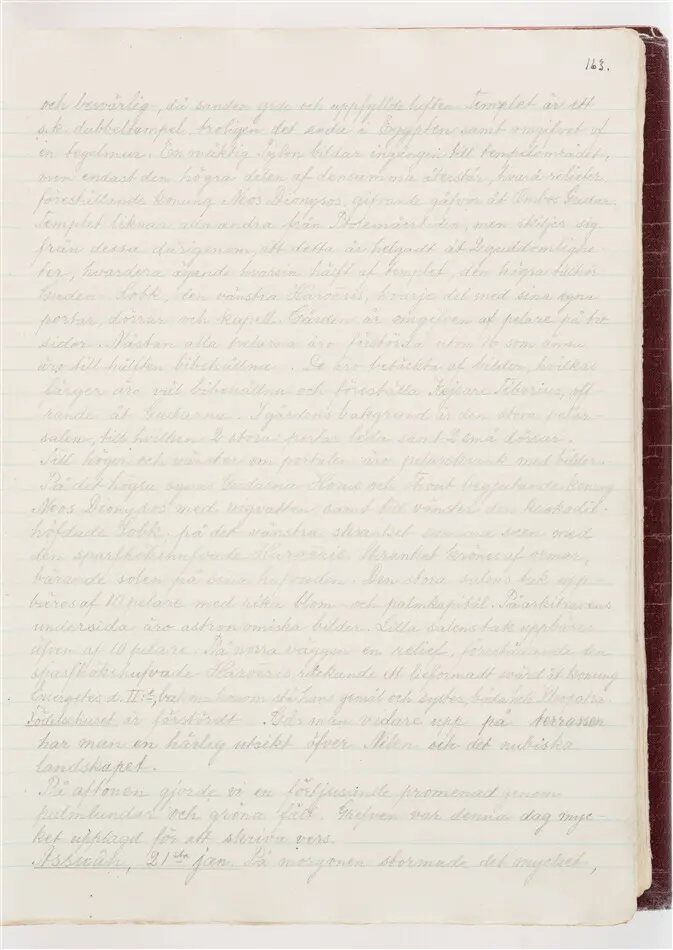 163.
och besvärlig, då sanden yrde och uppfyllde luften. Templet är ett
s.k. dubbeltempel, troligen det enda i Egypten samt omgifvet af
en tegelmur. En mäktig Pylon bildar ingången till tempelområdet,
men endast den högra delen af densamma återstår, hvarå reliefer
föreställande konung Neos Dionysos, gifvande gåfvor åt Ombos Gudar.
Templet liknar alla andra från Ptolemäertiden, men skiljer sig
från dessa därigenom, att detta är helgadt åt 2 guddomlighe-
ter, hvardera ägande hvarsin hälft af templet, den högra tillhör
Guden Sobk, den vänstra Haroëris, hvarje del med sina egna
portar, dörrar och kapell. Gården är omgifven af pelare på tre
sidor. Nästan alla pelarna äro förstörda utom 16 som ännu
äro till hälften bibehållna. De äro betäckta af bilder, hvilkas
färger äro väl bibehållna och föreställa Kejsare Tiberius, off-
rande åt Gudarna. I gårdens bakgrund är den stora pelar-
salen, till hvilken 2 stora portar leda samt 2 små dörrar.
Till höger och vänster om portalen äro pelarskrank med bilder.
På det högra synas Gudarna Horus och Thout begjutande konung
Neos Dionysos med vigvatten samt till vänster den krokodil-
höfdade Sobk, på det vänstra skranket samma scen med
den sparfhökshufvade Haroëris. Skranket krönes af ormar,
bärande solen på sina hufvuden. Den stora salens tak upp-
bäres af 10 pelare med rika blom- och palmkapitäl. På arkitravens
undersida äro astronomiska bilder. Lilla salens tak uppbäres
äfven af 10 pelare. På norra väggen en relief, föreställande den
sparfhökshufvade Haroëris räckande ett krokformadt svärd åt konung
Euergetes d. II:dra, bakom honom stå hans gemål och syster, båda heta Kleopatra
Födelsehuset är förstördt. Går man vidare upp på terrassen
har man en härlig utsikt öfver Nilen och det nubiska
landskapet.
På aftonen gjorde vi en förtjusande promenad genom
palmlundar och gröna fält. Grefven var denna dag myc-
ket upplagd för att skriva vers.
Asswân, 21sta jan. På morgonen stormade det mycket,